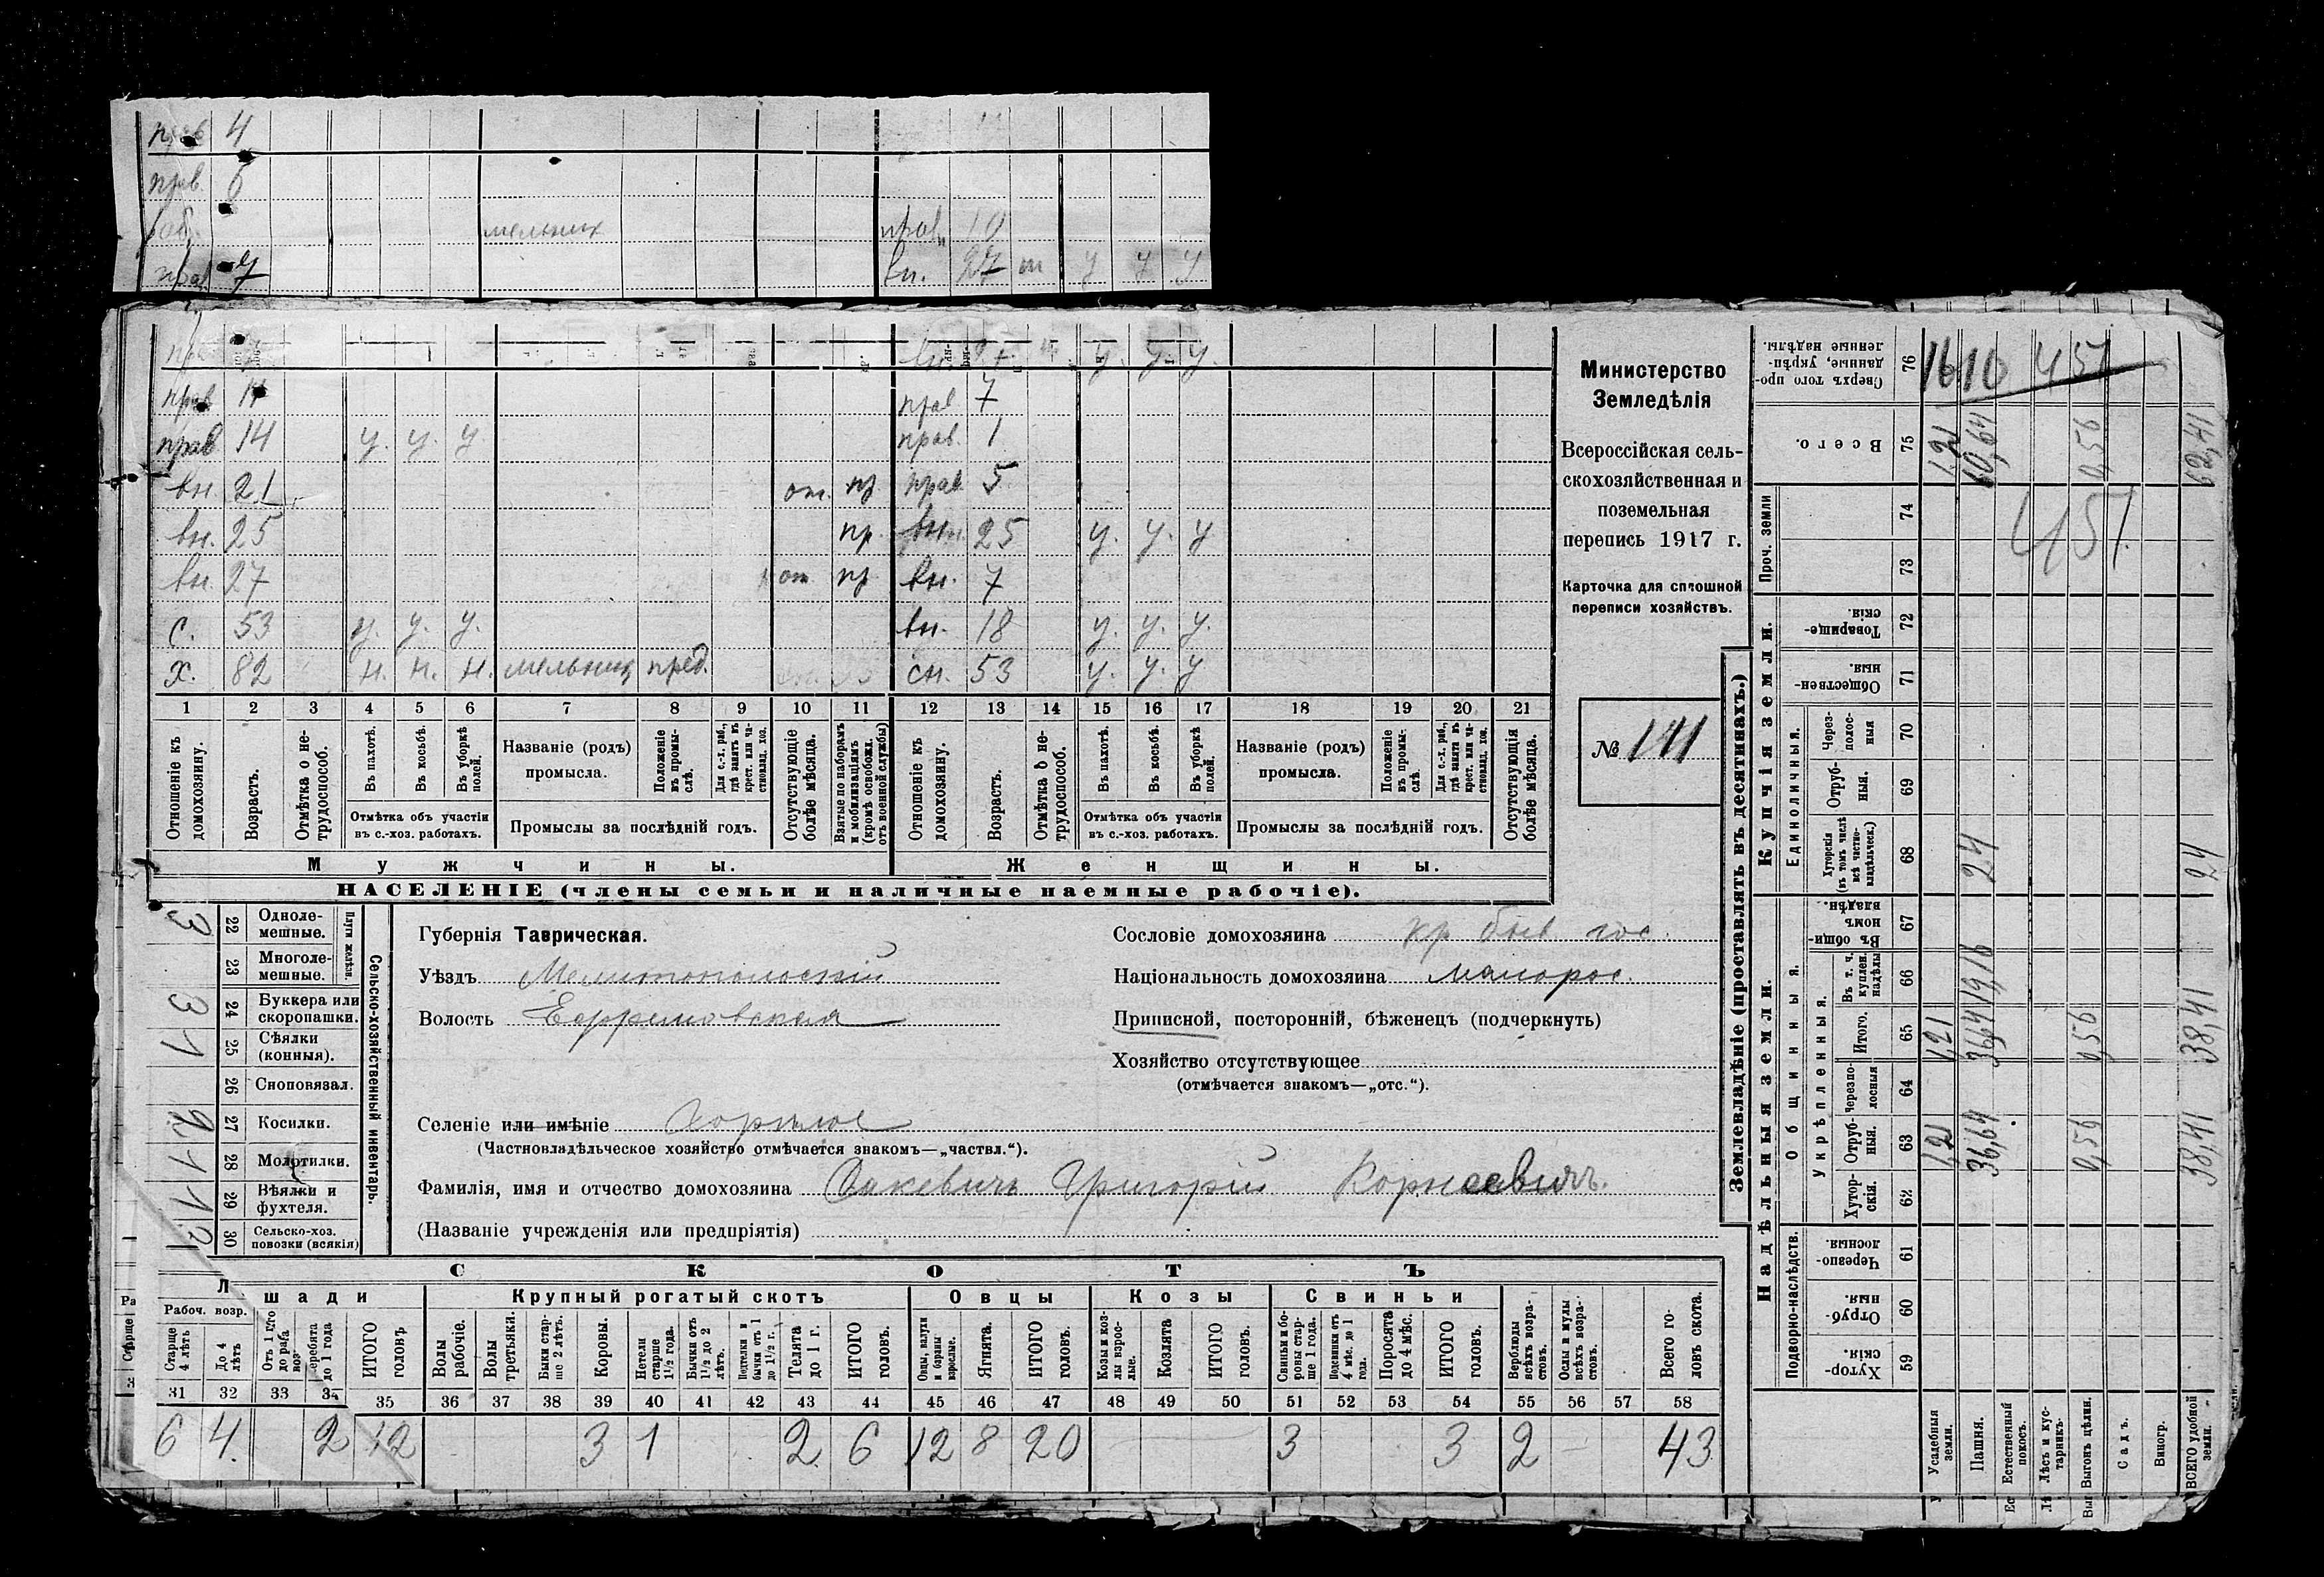 прав 4
прав. 6
раб. мельник прав. 10
прав 7 вн. 27 от у у у
вн. у. у. у.
прав 11 прав 7
прав 14 у. у. у. прав. 1
вн. 21 от. пр прав 5
вн. 25 пр. вн. 25 у. у. у
вн. 27 от пр вн. 7
с. 53 у. у. у. вн. 18 у. у. у.
х. 82 н. н. н. мельниц пред. сн. 53 у. у. у
1 2 3 4 5 6 7 8 9 10 11 12 13 14 15 16 17 18 19 20 21
Отношеніе къ домохозяину.
Возрастъ.
Отмѣтка о не-трудоспособ.
Въ пахотѣ.
Въ косьбѣ.
Въ уборкѣ полей.
Отмѣтка объ участіи
въ с.-хоз. работахъ.
Названіе (родъ)
промысла.
Положеніе въ промы-слѣ.
Для с.-х. раб., гдѣ занятъ въ крест. или ча-стновлад. хоз.
Промыслы за послѣдній годъ.
Отсутствующіе болѣе мѣсяца.
Взятые по наборамъ и мобилизаціямъ (кромѣ освобожд. отъ военной службы)
Отношеніе къ домохозяину.
Возрастъ.
Отмѣтка о не-трудоспособ.
Въ пахотѣ.
Въ косьбѣ.
Въ уборкѣ полей.
Отмѣтка объ участіи
въ с.-хоз. работахъ.
Названіе (родъ)
промысла.
Положеніе въ промы-слѣ.
Для с.-х. раб., гдѣ занята въ крест. или ча-стновлад. хоз.
Промыслы за послѣдній годъ.
Отсутствующія болѣе мѣсяца.
Мужчины. Женщины.
НАСЕЛЕНІЕ (члены семьи и наличные наемные рабочіе).
Министерство
Земледѣлія
Всероссійская сель-
скохозяйственная и
поземельная
перепись 1917 г.
Карточка для сплошной
переписи хозяйствъ.
№ 141
Сельско-хозяйственный инвентарь.
Плуги желѣзн.
3 22 Одноле-мешные.
23 Многоле-мешные.
3 24 Буккера или скоропашки.
1 25 Сѣялки (конныя).
26 Сноповязал.
2 27 Косилки.
1 28 Молотилки.
1 29 Вѣялки и фухтеля.
2 30 Сельско-хоз. повозки (всякія)
Губернія Таврическая.
Уѣздъ Мелитопольскій
Волость Ефремовская
Селеніе или имѣніе Горѣлое
(Частновладѣльческое хозяйство отмѣчается знакомъ—„частвл.“).
Сословіе домохозяина кр быв гос.
Національность домохозяина малорос.
Приписной, посторонній, бѣженецъ (подчеркнуть)
Хозяйство отсутствующее
(отмѣчается знакомъ—„отс.“).
Фамилія, имя и отчество домохозяина Сакевичъ Григорій Корнеевичъ.
(Названіе учрежденія или предпріятія)
СКОТЪ
Лошади Крупный рогатый скотъ Овцы Козы Свиньи
Рабоч. возр.
Старше 4 лѣтъ
До 4 лѣтъ
Отъ 1 го
Жеребята до 1 года
ИТОГО головъ
Волы рабочіе.
Волы третьяки.
Быки стар-ше 2 лѣтъ.
Коровы.
Нетели старше 1½ года.
Бычки отъ 1½ до 2 лѣтъ.
Подтелки и бычки отъ 1 до 1½ г.
Телята до 1 г.
ИТОГО головъ.
Овцы, валухи и бараны взрослые.
Ягнята.
ИТОГО головъ.
Козы и коз-лы взрос-лые.
Козлята
ИТОГО головъ.
Свиньи и бо-ровы стар-ше 1 года.
Подсвинки отъ 4 мѣс. до 1 года.
Поросята до 4 мѣс.
ИТОГО головъ.
Верблюды всѣхъ возра-стовъ.
Ослы и мулы всѣхъ возра-стовъ.
Всего го-ловъ скота.
31 32 33 34 35 36 37 38 39 40 41 42 43 44 45 46 47 48 49 50 51 52 53 54 55 56 57 58
6 4. 2 12 3 1 2 6 12 8 20 3 3 2 43
Землевладѣніе (проставлять въ десятинахъ.)
Купчія земли.
Надѣльныя земли.
Сверхъ того про-данные, укрѣп-ленные надѣлы. 76 16 10 451
Всего. 75 1,21 60,64 0,56 62,41
Проч. земли 74 73 451.
Товарище-скія. 72
Обществен-ныя. 71
Единоличныя.
Через-полос-ныя 70
Отруб-ныя. 69
Хуторскія (въ томъ числѣ всѣ частно-владѣльческ.) 68 24 24
Общинныя.
Въ общи номъ владѣн. 67
Укрѣпленныя.
Въ т. ч. куплен. надѣлы 66 19,16
Итого. 65 1,21 36,64 0,56 38,41
Черезпо-лосныя 64
Отруб-ныя. 63 1,21 36,64 0,56 38,41
Хутор-скія. 62
Подворно-наслѣдств.
Черезпо-лосныя. 61
Отруб-ныя. 60
Хутор-скія. 59
Усадебныя земли.
Пашня.
Естественный покосъ.
Лѣсъ и кус-тарникъ.
Выгонъ цѣлин.
Садъ.
Виногр.
ВСЕГО удобной земли.